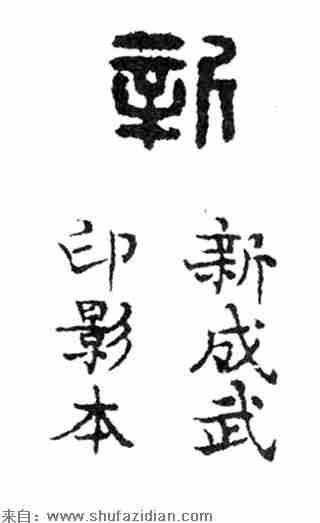 新
新成武
印影本
来自：www.shufazidian.com